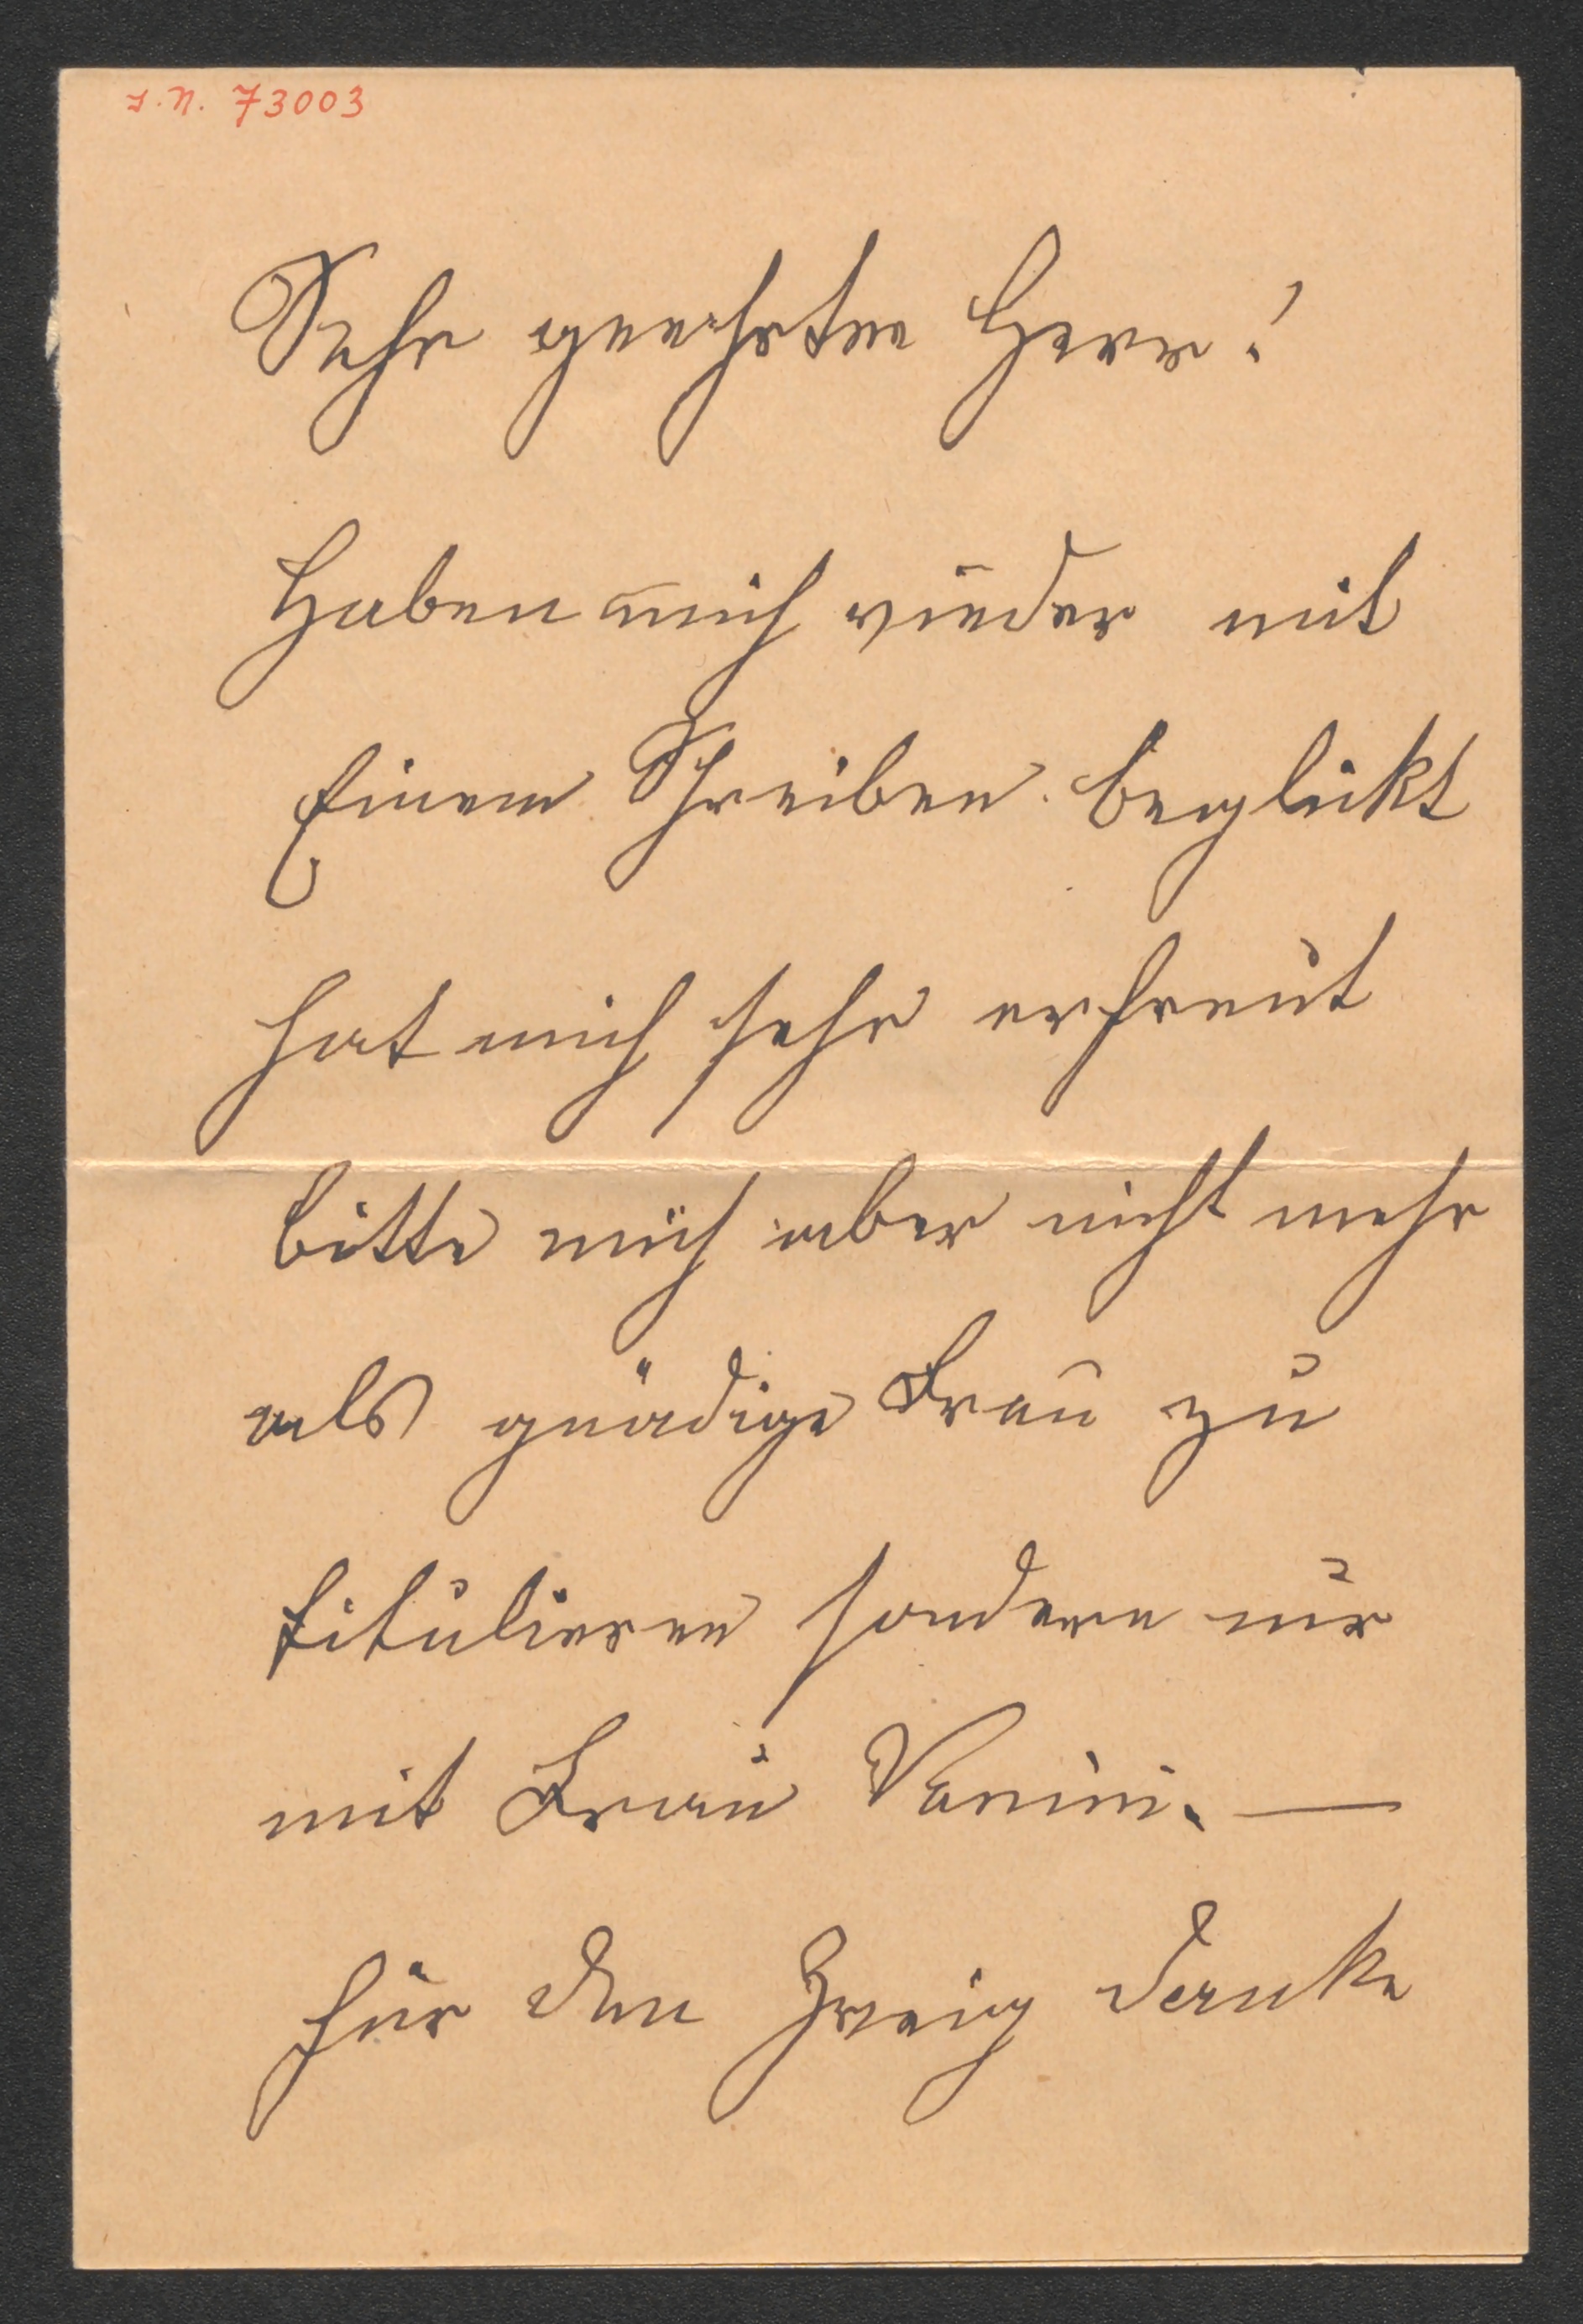 I.N. 73003
Sehr geehrter Herr!
Haben mich wieder mit
Einem Schreiben beglükt
hat mich sehr erfreut
bitte mich aber nicht mehr
als gnädige Frau zu
titulieren sondern nur
mit Frau Vanini. —
für den Zweig danke